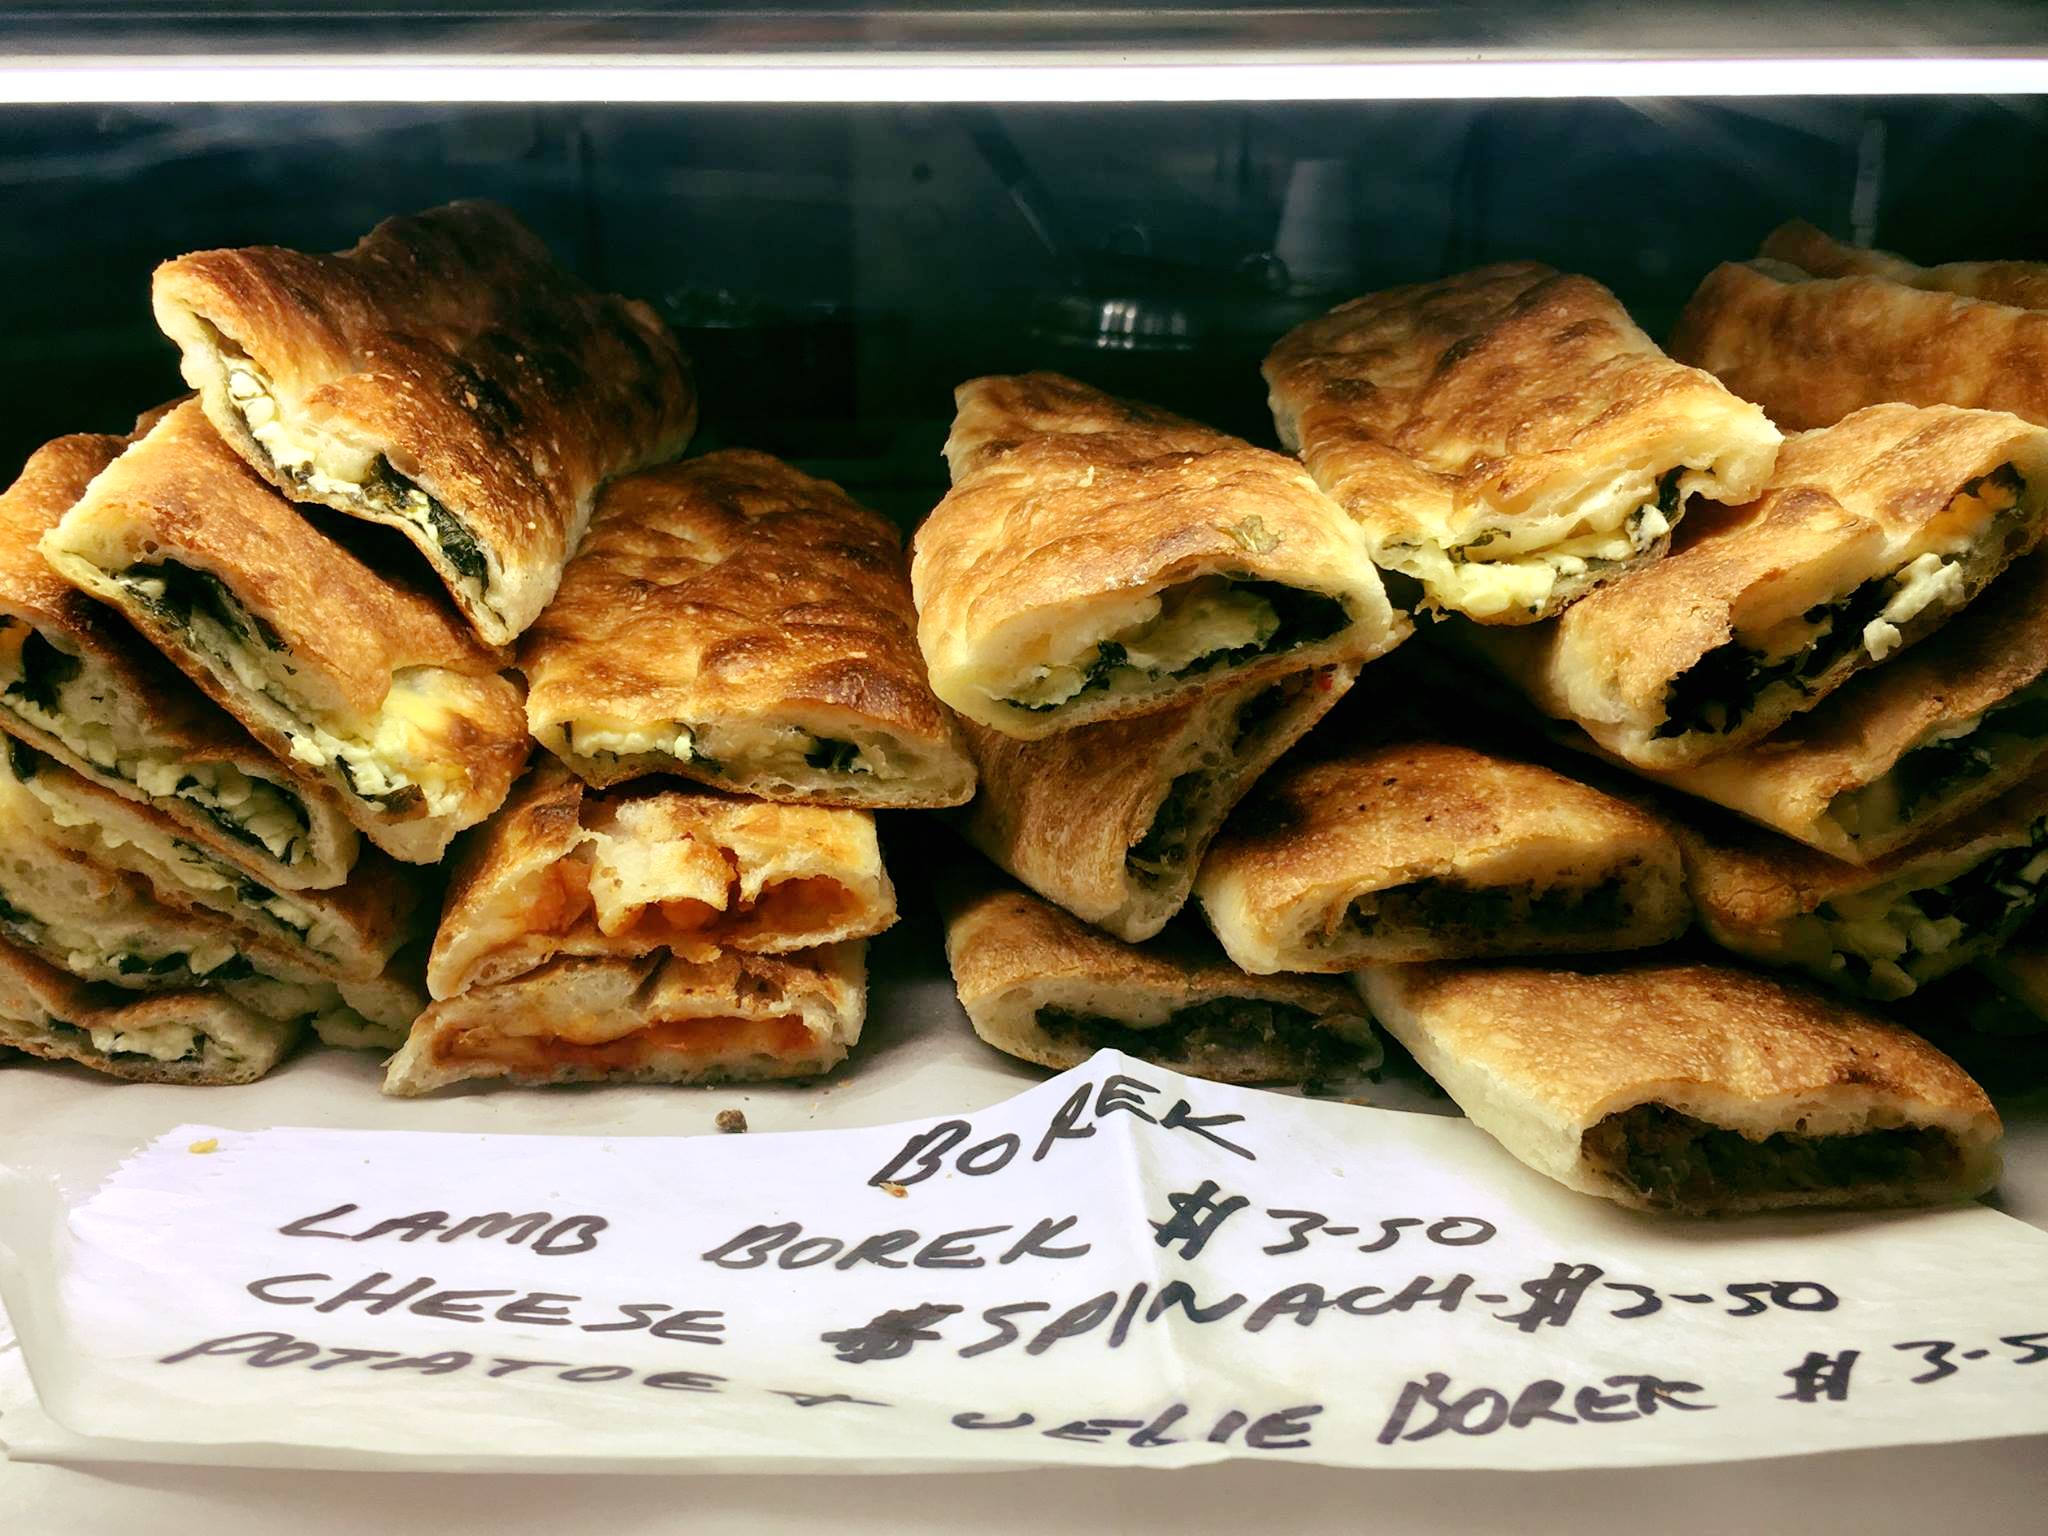 BOREK
LAMB BOREK $3-50
CHEESE SPINACH-$3-50
POTATOE + VEGIE BOREK $3-5